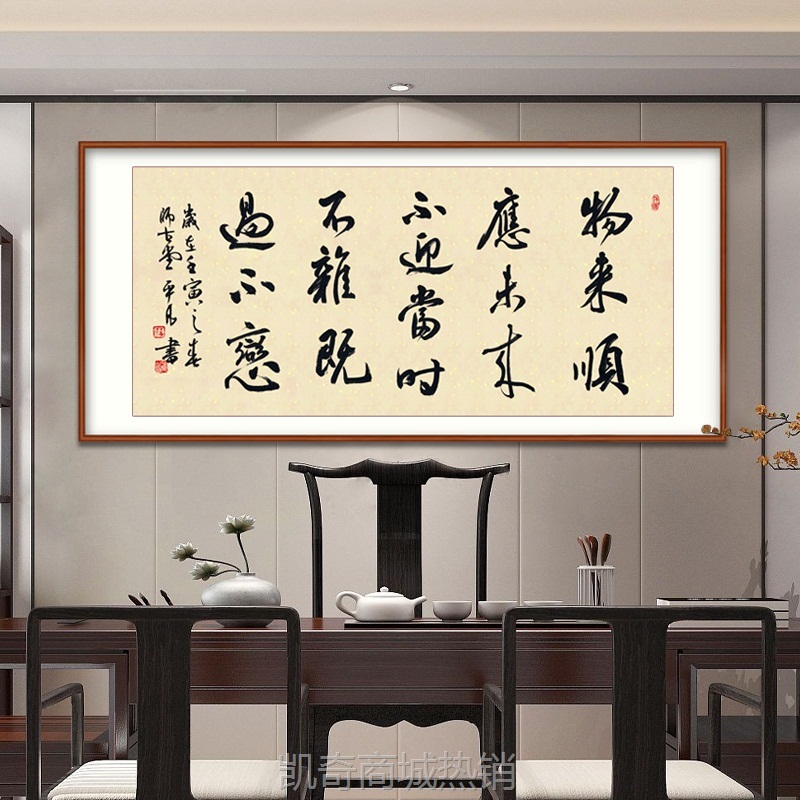 物来順
應未来
不迎當时
不雜既
過不戀
歲在壬寅之春
師古堂書
凯奇商城热销